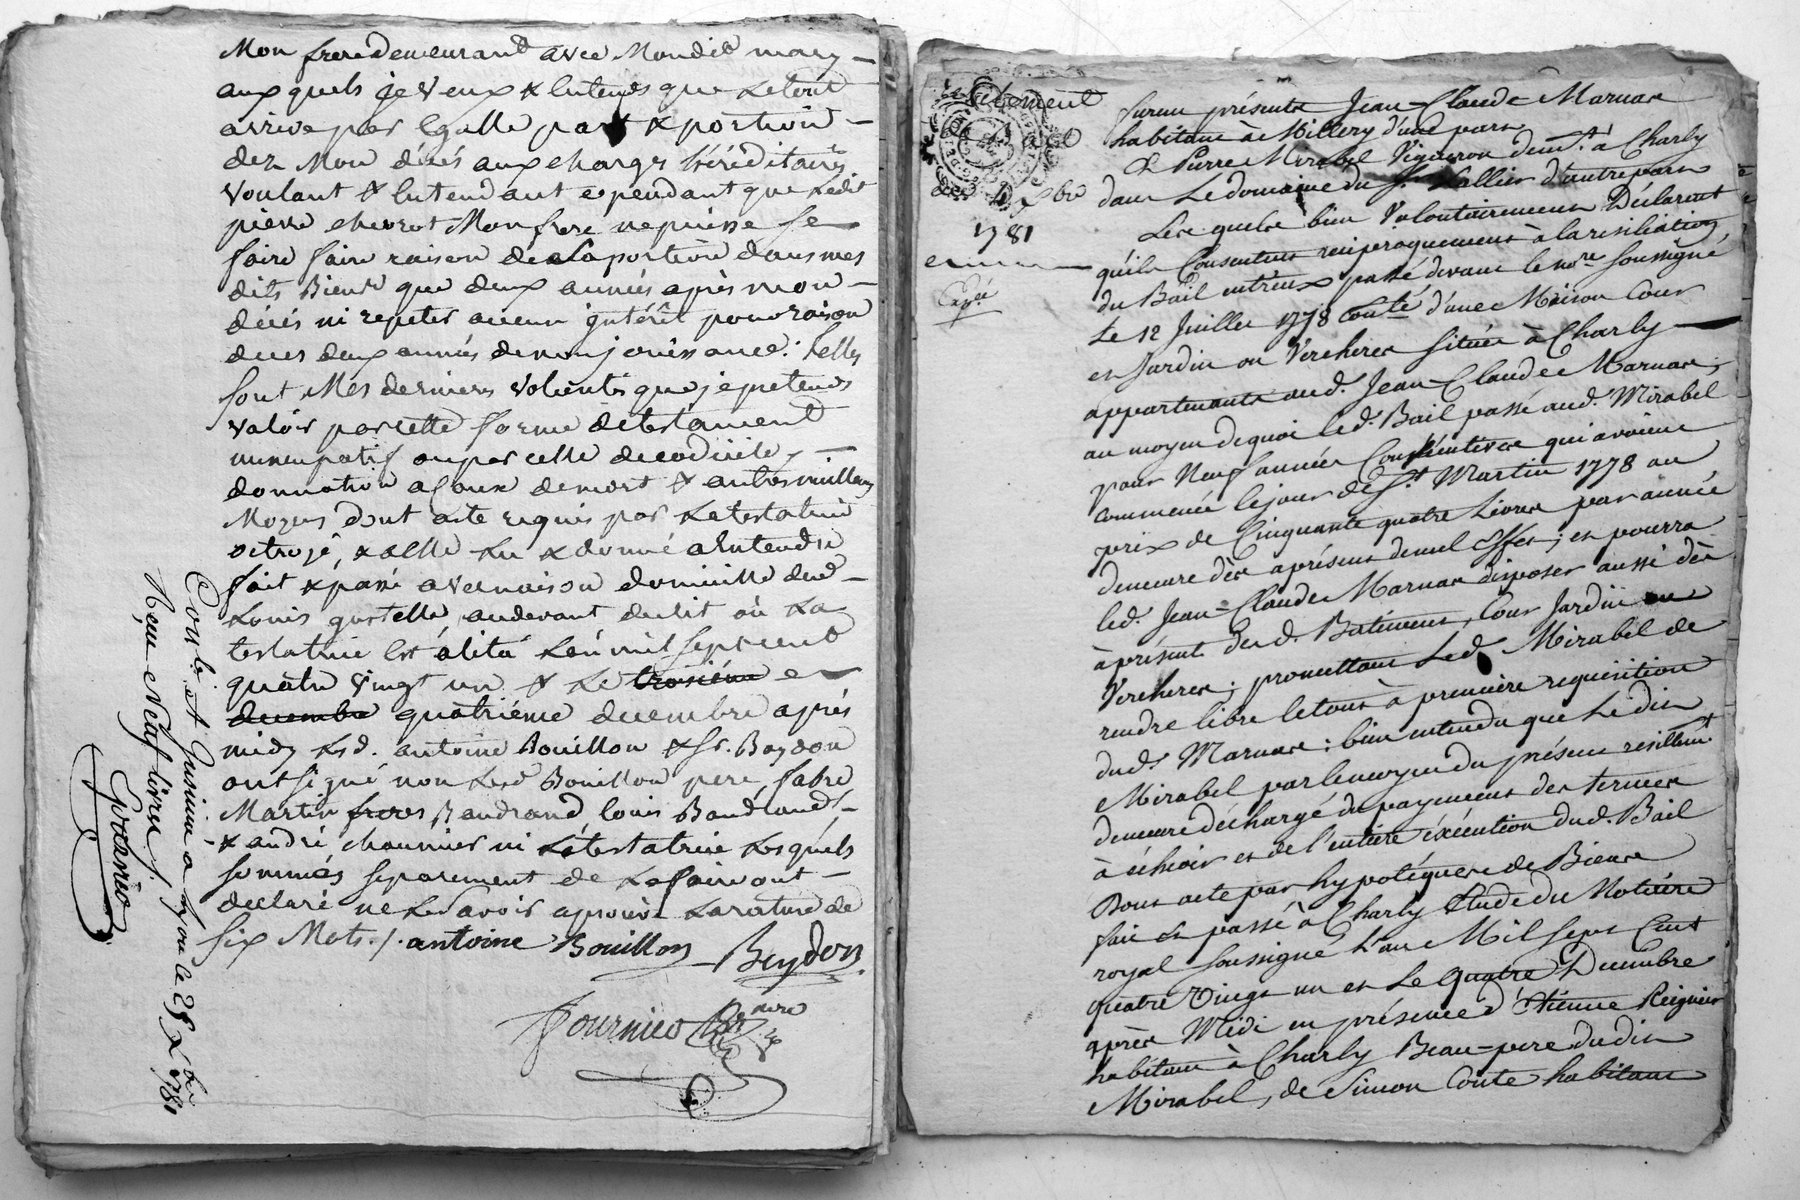 Mon frere demeurant avec Mondit mary
aux quels je veux & entends que le tout
arrive par Egalle part & portion
dez Mon décés aux charges héréditaires
voulant & Entendant cependant que ledit
pierre chevrot Mon frere ne puisse se
faire faire raison de La portion dans mes
dits Biens que deux années après mon
décés ni repeter aucun jntérêt pour raison
de ces deux années de non jouissance. telles
sont Mes dernieres volontés que je pretends
valoir par cette forme de testament
nuncupatif ou par celle de codicile,
donnation a cause de mort & autres meilleurs
Moyens dont acte requis par La testatrice
octroyé, & a elle Lu & donné a Entendre
fait & passé a vernaison domicille dud.
Louis gustelle audevant du lit où La
testatrice Est alitée L'an mil sept cent
quatre vingt un & Le troisiéme
decembre quatriéme decembre après
midy Led. antoine Bouillon & Sr. Boydon
ont signé non Led Bouillon pere, fabre
Martin freres Baudrand louis Baudrand
& andré chaunier ni La testatrice Lesquels
sommés separement de Le faire ont
declaré ne Le savoir aprouvé La rature de
six Mots ./. antoine Bouillon Beydon
Fournier Nore
Con.lé. et Insinué a Lyon le 28 Xbre 1781
Reçu Neuf livres /.
1781
Expé
furent présents Jean-Claude Marnas
habitant à Millery d'une part
Et Pierre Mirabel Vigneron demt. à Charly
dans Le domaine du Sr. Lallier d'autre part
Lesquels bien Volontairement Déclarent
qu'ils Consentent réciproquement à la résiliation
du Bail entr'eux passé devant le nore soussigné
Le 12 Juillet 1778 Conté d'une Maison Cour
et Jardin ou Vercheres située à Charly
appartenants aud. Jean-Claude Marnas;
au moyen de quoi led. Bail passé aud. Mirabel
pour Neuf années Consécutives qui avoient
commencé le jour de St Martin 1778 au
prix de Cinquante quatre Livres par année
demeure dès àprésent de nul Effet; et pourra
led. Jean-Claude Marnas disposer aussi dès
àprésent desd. Batimens, Cour Jardin ou
Vercheres; promettant Led. Mirabel de
rendre libre le tout à première requisition
dud. Marnas: bien entendu que Ledit
Mirabel par le moyen du présent resiliment
demeure déchargé du payement des termes
à échoir et de l'entiere éxécution dud. Bail
Dont acte par hypotéques de Biens
fait et passé à Charly Etude du Notaire
royal soussigné L'an Mil sept Cent
quatre Vingt un et Le quatre Decembre
après Midi en présence d'Etienne Reignier
habitant à Charly Beau-pere dudit
Mirabel, de Simon Conte habitant